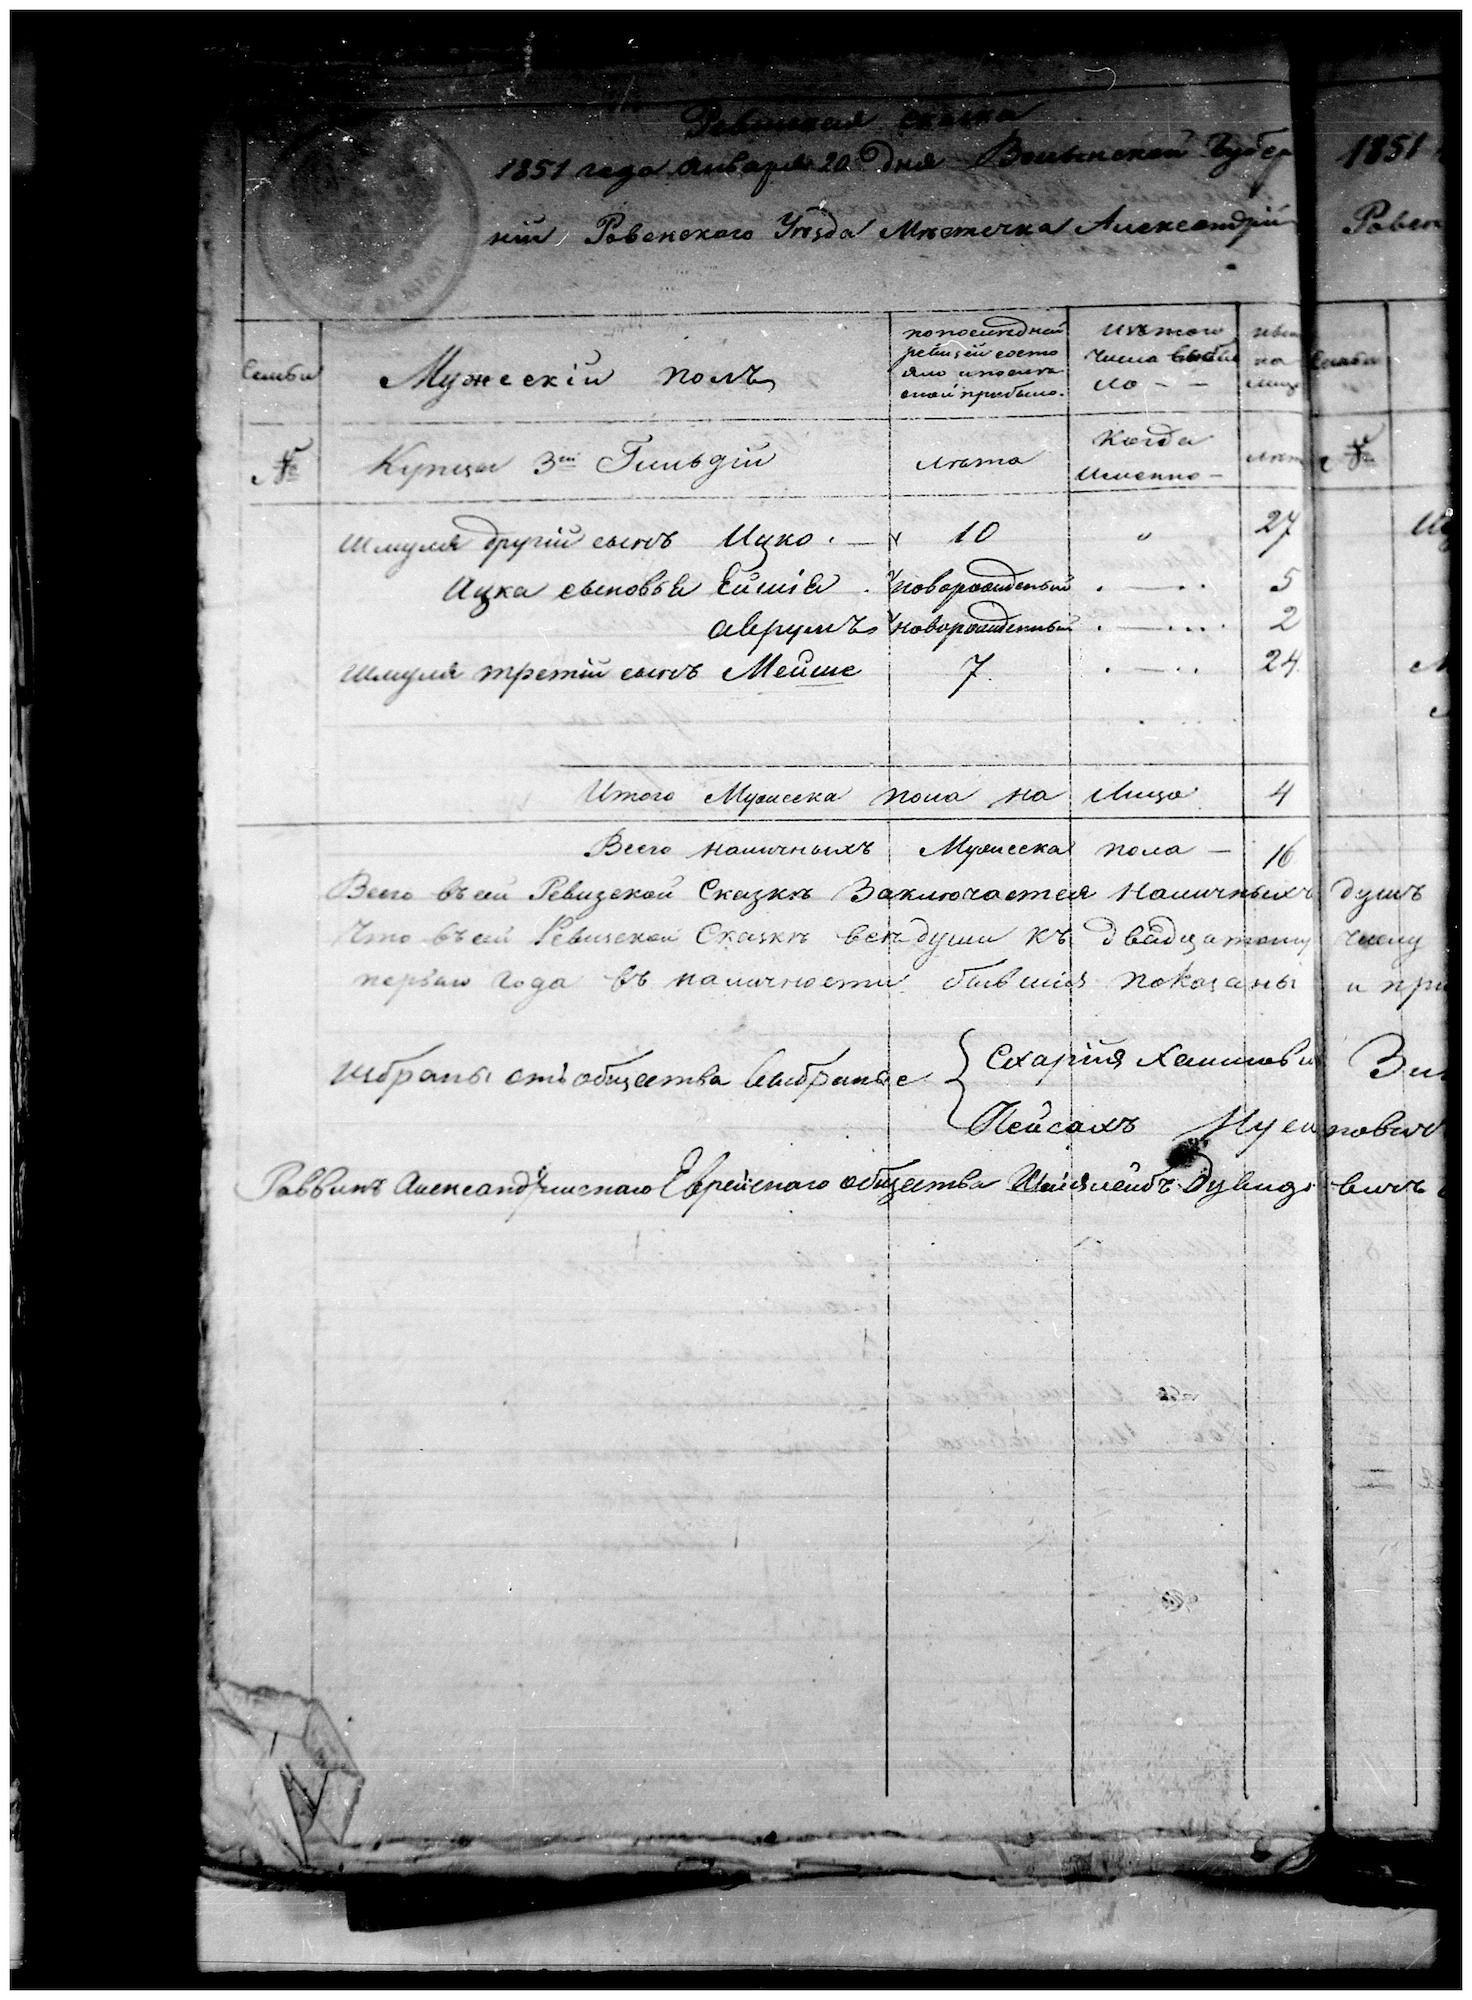 Ревизская сказка
1851 года Января 20 дня Волынской Губер 1851
ніи Ровенского Уезда Местечка Александріи Ровен
Семьи Мужескій полъ по последней ревизіи состояло и после оной прибыло. Изъ того числа выбыло - - ныне на лицо Семьи
№ Купцы 3й Гильдіи лета Когда именно - лета №
Шмуля другій сынъ Ицко . — 10 " 27
Ицка сыновья Ейшія . новорожденый . — . . 5
Аврумъ новорожденный . — . . . 2
Шмуля третій сынъ Мейше 7. . — . . 24.
Итого Мужеска пола на Лицо 4
Всего наличныхъ Мужеска пола — 16
Всего въ сей Ревизской Сказкѣ Заключается наличныхъ душъ
Что въ сей Ревизской Сказкѣ все души къ двадцатому числу
первого года въ наличности бывшія показаны и при
отъ общества выбраные { Сахарія Хаимови
Пейсахъ Мусиновичъ
Раввинъ Александрійскаго Еврейскаго общества Шаялейбъ Дувидовичъ